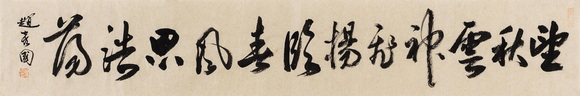 望秋雲神飛揚臨春風思浩蕩